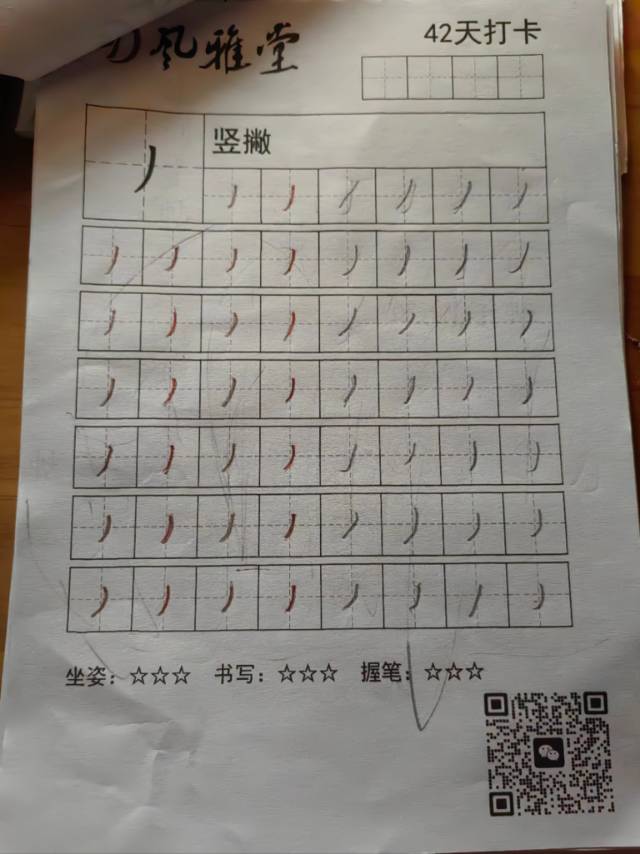 风雅堂
42天打卡
竖撇
坐姿：☆☆☆ 书写：☆☆☆ 握笔：☆☆☆